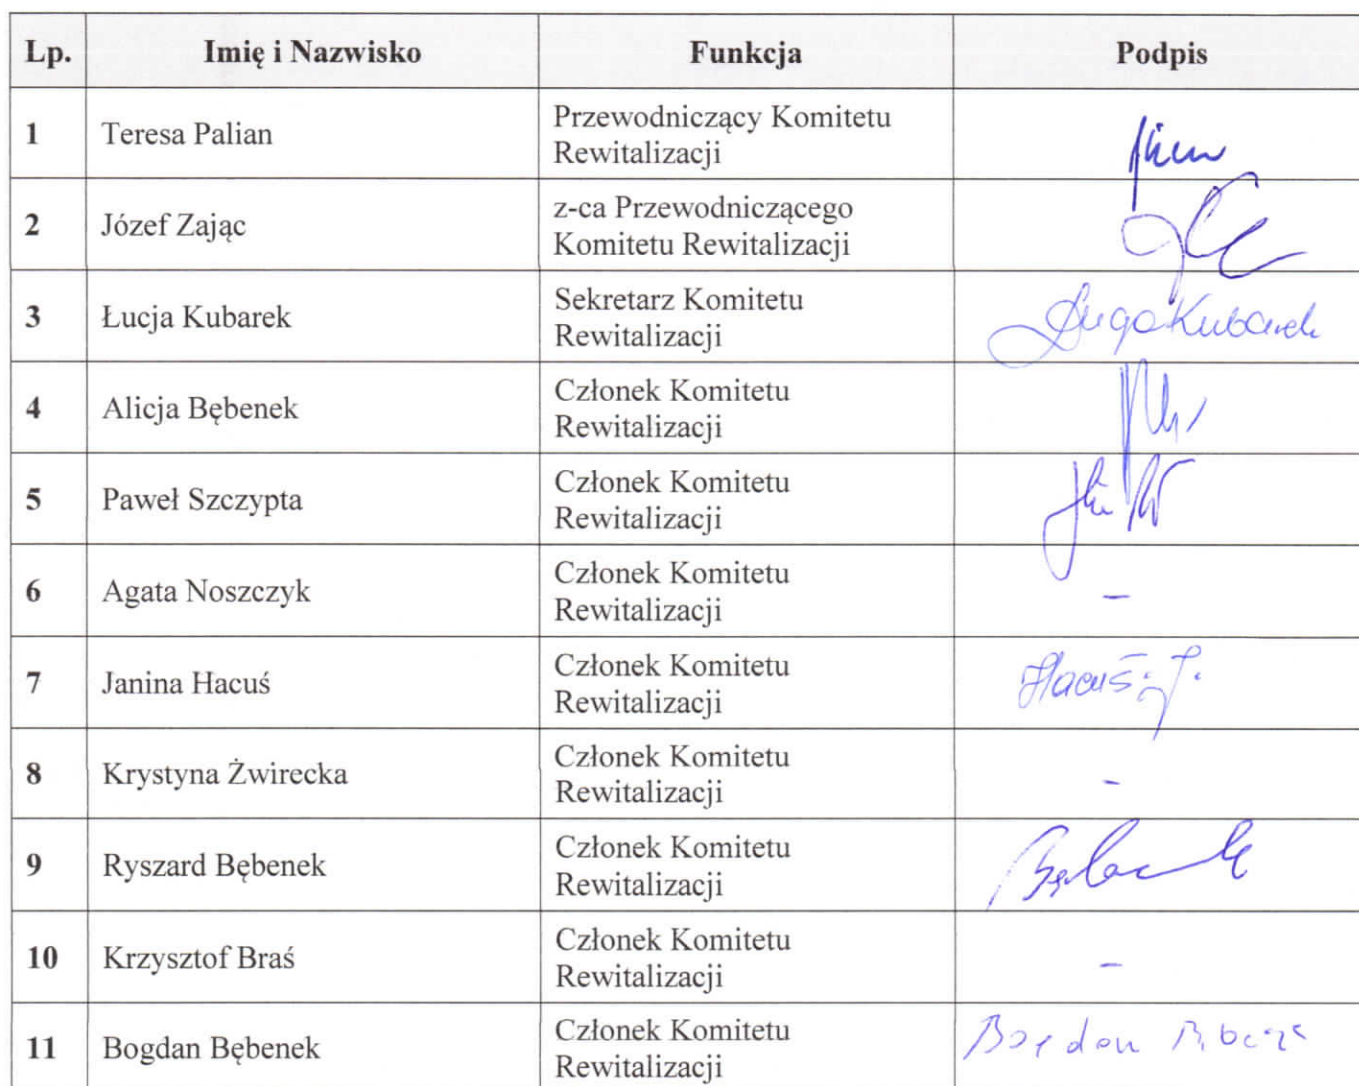 Lp. Imię i Nazwisko Funkcja Podpis
1 Teresa Palian Przewodniczący Komitetu
Rewitalizacji
2 Józef Zając z-ca Przewodniczącego
Komitetu Rewitalizacji
3 Łucja Kubarek Sekretarz Komitetu
Rewitalizacji Kubarek
4 Alicja Bębenek Członek Komitetu
Rewitalizacji
5 Paweł Szczypta Członek Komitetu
Rewitalizacji
6 Agata Noszczyk Członek Komitetu
Rewitalizacji –
7 Janina Hacuś Członek Komitetu
Rewitalizacji Hacuś J.
8 Krystyna Żwirecka Członek Komitetu
Rewitalizacji -
9 Ryszard Bębenek Członek Komitetu
Rewitalizacji
10 Krzysztof Braś Członek Komitetu
Rewitalizacji –
11 Bogdan Bębenek Członek Komitetu
Rewitalizacji Bogdan